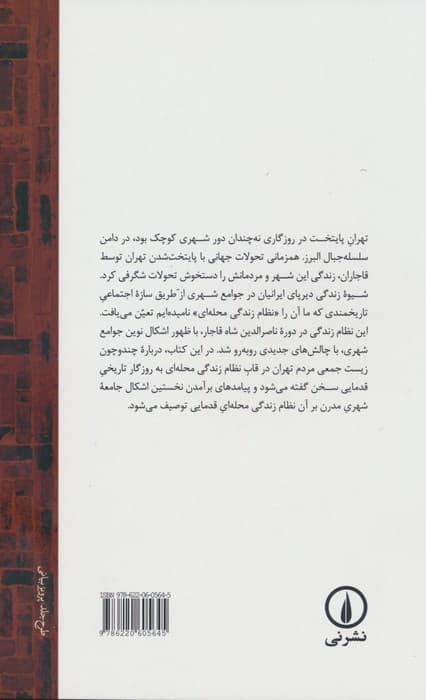 تهرانِ پایتخت در روزگاری نه‌چندان دور شهری کوچک بود، در دامن
سلسله‌جبال البرز. همزمانی تحولات جهانی با پایتخت‌شدن تهران توسط
قاجاران، زندگی این شهر و مردمانش را دستخوش تحولات شگرفی کرد.
شیوهٔ زندگی دیرپای ایرانیان در جوامع شهری از طریق سازهٔ اجتماعیِ
تاریخمندی که ما آن را «نظام زندگی محله‌ای» نامیده‌ایم تعیّن می‌یافت.
این نظام زندگی در دورهٔ ناصرالدین شاه قاجار، با ظهور اشکال نوین جوامع
شهری، با چالش‌های جدیدی روبه‌رو شد. در این کتاب، دربارهٔ چندوچون
زیست جمعی مردم تهران در قابِ نظام زندگی محله‌ای به روزگار تاریخیِ
قدمایی سخن گفته می‌شود و پیامدهای برآمدن نخستین اشکال جامعهٔ
شهریِ مدرن بر آن نظام زندگی محله‌ایِ قدمایی توصیف می‌شود.
ISBN 978-622-06-0564-5
9 786220 605645
نشرنی
طرح جلد: پرویز بیانی